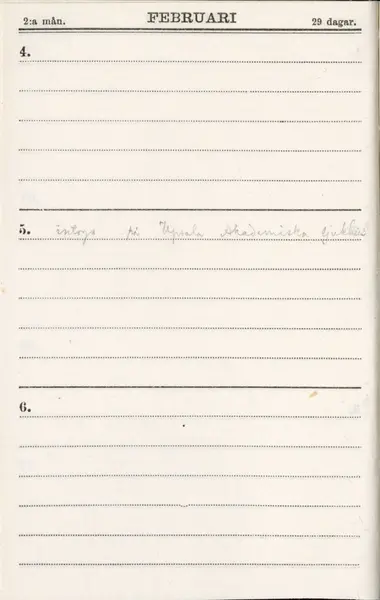 2:a mån. FEBRUARI 29 dagar.
4.
5. intogs på Upsala Akademiska Sjukhus
6.